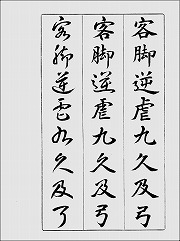 客脚逆虐九久及弓
客脚逆虐九久及弓
客脚逆虐九久及弓